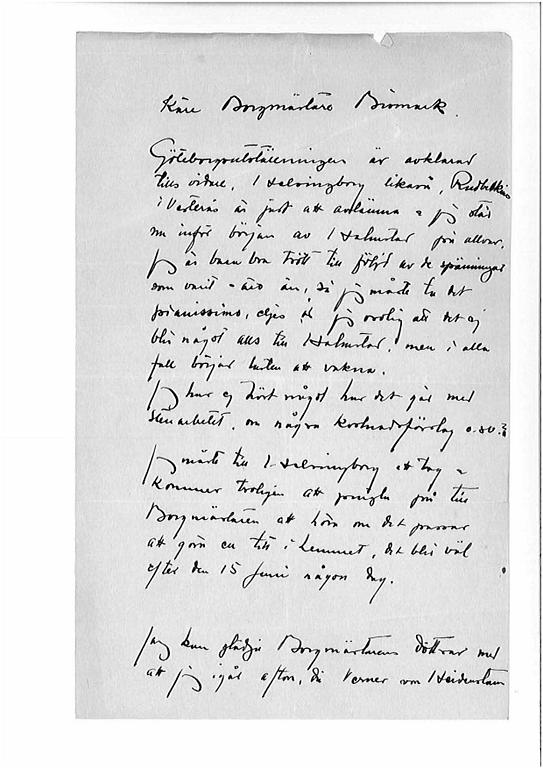 Käre Borgmästare Bismark.
Göteborgsutställningen är avklarad
tills vidare, i Hälsingborg likaså, Rudbeckius
i Västerås är just att avlämna o jag står
nu inför början av i Halmstad på allvar.
Jag är bara bra trött till följd av de spänningar
som varit o äro än, så jag måste ta det
pianissimo, eljes är jag orolig att det ej
blir något alls till Halmstad, men i alla
fall börjar lusten att vakna.
Jag har ej hört något hur det går med
stenarbetet, om några kostnadsförslag o.s.v.?
Jag måste till Hälsingborg ett tag o
kommer troligen att på till
Borgmästaren att höra om det passar
att göra en titt i hemmet, det blir väl
efter den 15 Juni någon dag.
Jag kan glädja Borgmästarens döttrar med
att jag igår afton, då Verner von Heidenstam